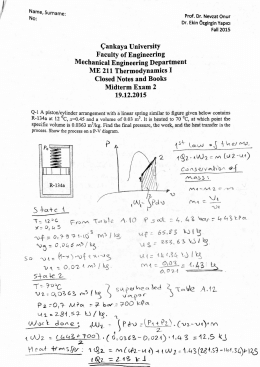 Name, Surname:
No:
Prof. Dr. Nevzat Onur
Dr. Ekin Özgirgin Yapıcı
Fall 2015
Çankaya University
Faculty of Engineering
Mechanical Engineering Department
ME 211 Thermodynamics I
Closed Notes and Books
Midterm Exam 2
19.12.2015
Q-1 A piston/cylinder arrangement with a linear spring similar to figure given below contains
R-134a at 12 °C, x=0.45 and a volume of 0.03 m³. It is heated to 70 °C, at which point the
specific volume is 0.0363 m³/kg. Find the final pressure, the work, and the heat transfer in the
process. Show the process on a P-V diagram.
R-134a
P
1
2
v
1W2 = ∫Pdv
1st law of thermo.
1Q2 - 1W2 = m (u2-u1)
conservation of
mass:
m1 = m2 = m
State 1
T = 12 °C
x = 0.45
From Table A.10 P sat = 4.43 bar = 443 kPa
State 2
T = 70 °C
v2 = 0.0363 m³/kg
superheated
vapor
Table A.12
P2 = 0.7 MPa = 7 bar = 700 kPa
Work done: 1W2 = ∫Pdv = (P1+P2)/2 . (v2-v1).m
1W2 = (443+700)/2 . (0.0363-0.021) . 1.43 = 12.5 kJ
Heat transfer: 1Q2 = m(u2-u1) + 1W2